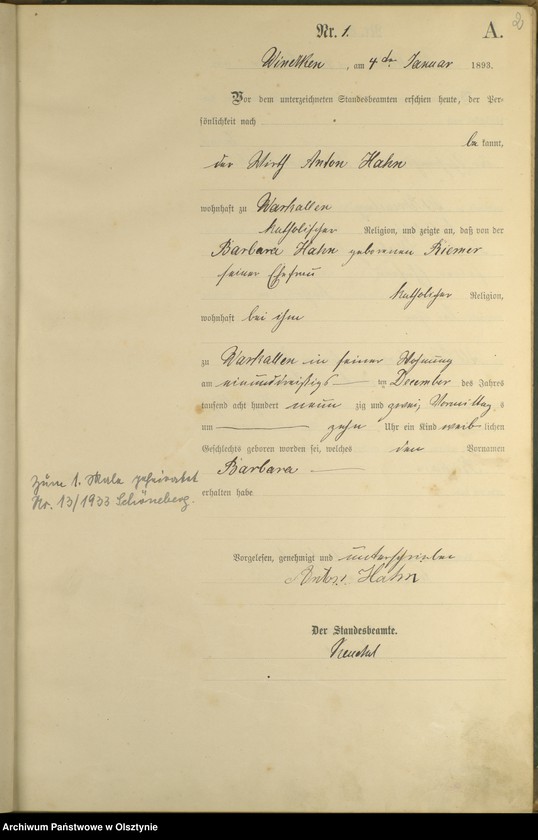 2
Nr. 1.
A.
Winetken, am 4ten Januar 1893.
Vor dem unterzeichneten Standesbeamten erschien heute, der Per-
sönlichkeit nach
be kannt,
der Wirth Anton Hahn
wohnhaft zu Warkallen
katholischer Religion, und zeigte an, daß von der
Barbara Hahn geborenen Riemer
seiner Ehefrau
katholischer Religion,
wohnhaft bei ihm
zu Warkallen in seiner Wohnung
am einunddreißigsten December des Jahres
tausend acht hundert neun zig und zwei, Vormittag s
um zehn Uhr ein Kind weib lichen
Geschlechts geboren worden sei, welches den Vornamen
Barbara
erhalten habe
Zum 1. Male geheiratet
Nr. 13/1933 Schöneberg.
Vorgelesen, genehmigt und unterschrieben
Anton Hahn
Der Standesbeamte.
Archiwum Państwowe w Olsztynie